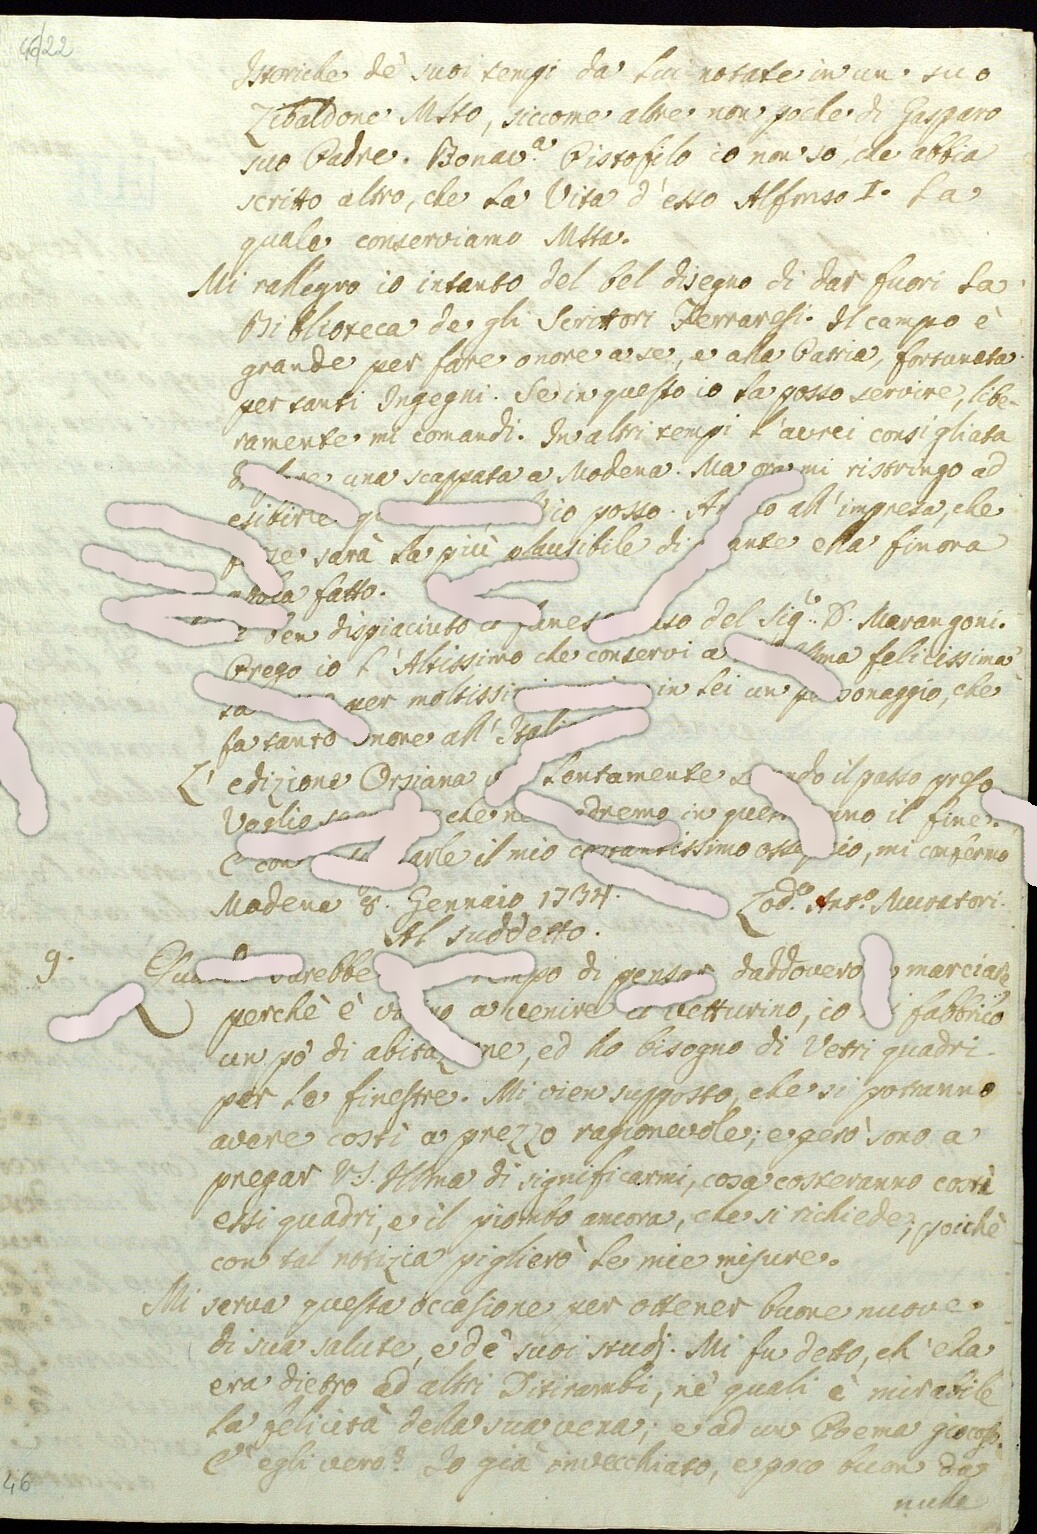 4622
Istoriche de' suoi tempi da lui notate in un suo
Zibaldone Msto, siccome altre non poche di Gasparo
suo Padre. Bonav.ª Pistofilo io non so, che abbia
scritto altro, che la Vita d'esso Alfonso I. la
quale conserviamo Msta.
Mi rallegro io intanto del bel disegno di dar fuori la
Biblioteca de gli Scrittori Ferraresi. Il campo è
grande per fare onore a se, e alla Patria, fortunata
per tanti Ingegni. Se in questo io la posso servire, libe-
ramente mi comandi. In altri tempi l'avrei consigliata
una scappata a Modena. Ma ora mi ristringo ad
esibirle io posso. all'impresa, che
sarà la più plausibile di ella finora
fatto.
ben dispiaciuto del Sig.r D. Marangoni.
Prego io l'Altissimo che conservi a felicissima
per moltissimi in lei un personaggio, che
fa tanto onore all'Italia
L'edizione Orsiana lentamente il passo preso
Voglio che in il fine.
E con il mio ossequio, mi confermo
Modena 8. Gennaio 1734. Lod.º Ant.º Muratori.
Al suddetto.
9. sarebbe tempo di pensar daddovero marciare
perchè è vicino a venire il vetturino, io mi fabbrico
un pò di abitazione, ed ho bisogno di Vetri quadri
per le finestre. Mi vien supposto, che si potranno
avere costì a prezzo ragionevole; e però sono a
pregar V.S. Illma di significarmi, cosa costeranno costì
essi quadri, e il piombo ancora, che si richiede; poichè
con tal notizia piglierò le mie misure.
Mi serva questa occasione per ottener buone nuove
di sua salute, e de' suoi studj. Mi fu detto, ch'ella
era dietro ad altri Ditirambi, ne' quali è mirabile
la felicità della sua vena; e ad un Poema giocoso.
È egli vero? Io già invecchiato, e poco buon da
nulla
46